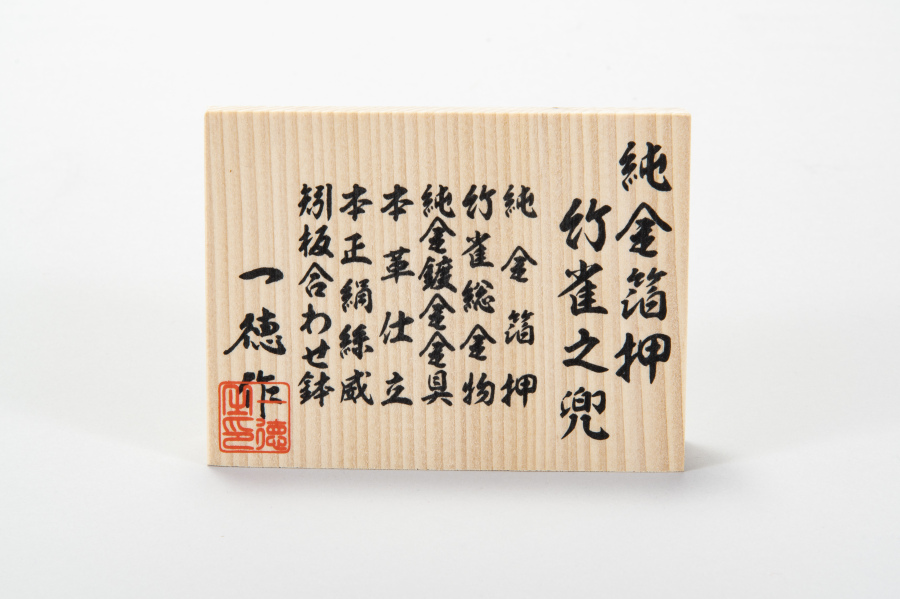 純金箔押
竹雀之兜
純金箔押
竹雀総金物
純金鍍金金具
本革仕立
本正絹絲威
矧板合わせ鉢
一徳作
一徳之印